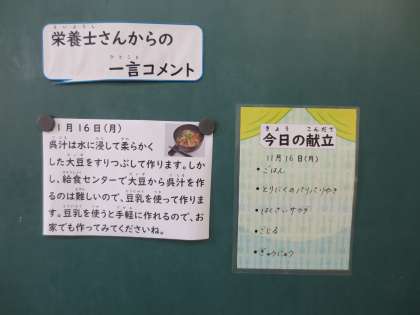 栄養士さんからの
一言コメント
11月16日(月)
呉汁は水に浸して柔らかく
した大豆をすりつぶして作ります。しか
し、給食センターで大豆から呉汁を作
るのは難しいので、豆乳を使って作りま
す。豆乳を使うと手軽に作れるので、お
家でも作ってみてくださいね。
きょう こんだて
今日の献立
11月16日(月)
・ごはん
・とりにくのパリパリやき
・はくさいサラダ
・ごじる
・ぎゅうにゅう